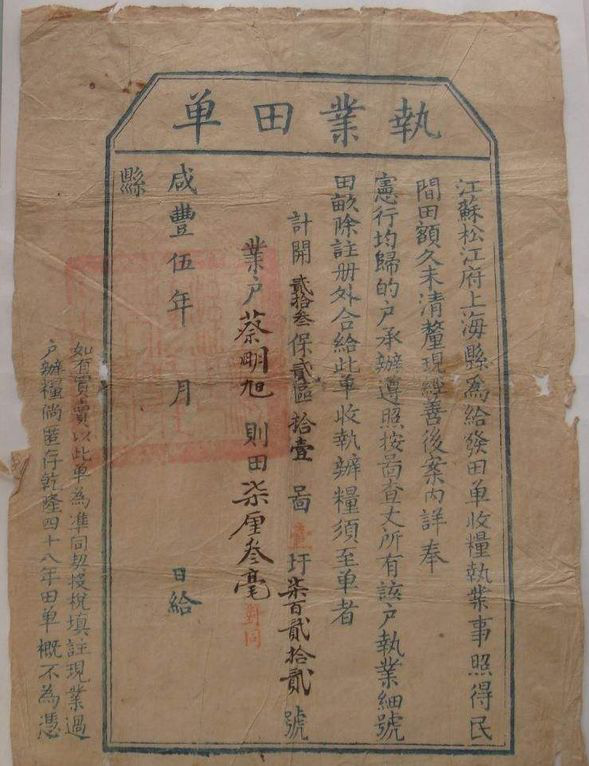 執業田单
江蘇松江府上海縣爲給發田单收糧執業事照得民
間田額久未清釐現經善後案内詳奉
憲行均歸的户承辦遵照按啚查丈所有該户執業細號
田畝除註册外合給此单收執辦糧須至单者
計開貳拾叁保貳區拾壹啚壹圩柒百貳拾貳號
業户蔡明旭則田柒厘叁毫對同
咸豐伍年月日給
縣
如有賣買以此单為準同契投稅填註現業過
户辦糧倘匿存乾隆四十八年田单概不為憑